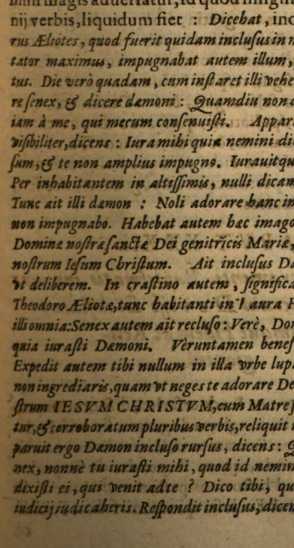 nij verbis, liquidum fiet : Dicebat, inc
rus Æliotes, quod fuerit quidam inclusus in m
tator maximus, impugnabat autem illum,
tus. Die verò quadam, cum instaret illi vehe
re senex, & dicere dæmoni : Quamdiu non d
iam à me, qui mecum consenuisti. Appar
visibiliter, dicens : Iura mihi quia nemini di
sum, & te non amplius impugno. Iurauitqu
Per inhabitantem in altissimis, nulli dicam
Tunc ait illi dæmon : Noli adorare hanc im
non impugnabo. Habebat autem hæc imago
Dominæ nostræ sanctæ Dei genitricis Mariæ,
nostrum Iesum Christum. Ait inclusus Dæ
vt deliberem. In crastino autem, significa
Theodoro Æliotæ, tunc habitanti in laura P
illi omnia: Senex autem ait recluso : Verè, Dom
quia iurasti Dæmoni. Veruntamen benef
Expedit autem tibi nullum in illa vrbe lup
non ingrediaris, quam vt neges te adorare De
strum IESVM CHRISTVM, cum Matre
tur, & corroboratum pluribus verbis, reliquit i
paruit ergo Dæmon incluso rursus, dicens : Q
nex, nonnè tu iurasti mihi, quod id nemin
dixisti ei, qui venit ad te ? Dico tibi, qu
iudicij iudicaberis. Respondit inclusus, dicen